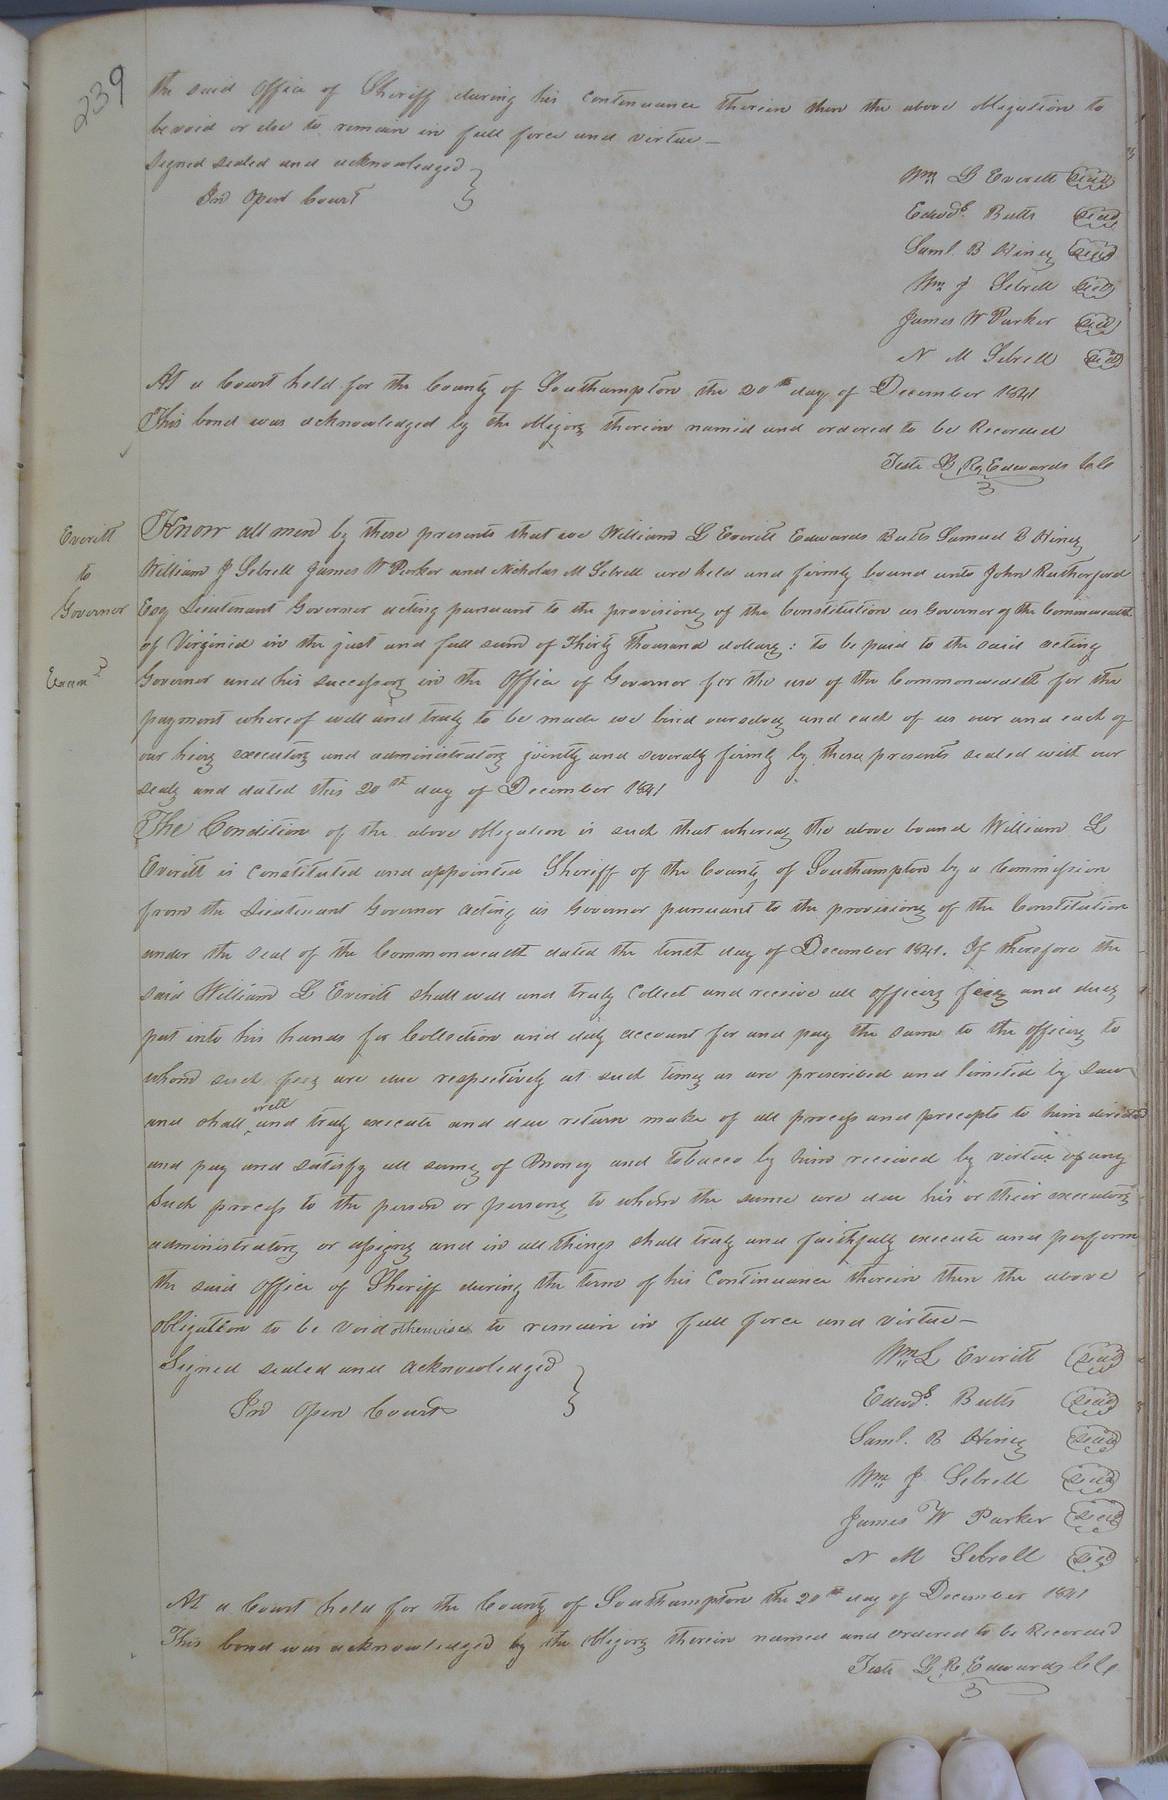 239
the said Office of Sheriff during his continuance therein then the above obligation to
be void or else to remain in full force and virtue—
Signed sealed and acknowledged
In Open Court
Wm L Everett Seal
Edwds. Butts Seal
Saml. B Hines Seal
Wm J Sebrell Seal
James W Parker Seal
N M Sebrell Seal
At a Court held for the County of Southampton the 20th day of December 1841
This bond was acknowledged by the obligors therein named and ordered to be Recorded
Teste L R Edwards ClC
Everitt
to
Governor
Examd
Know all men by these presents that we William L Everitt Edwards Butts Samuel B Hines
William J Sebrell James W Parker and Nicholas M Sebrell are held and firmly bound unto John Rutherford
Esq Lieutenant Governor acting pursuant to the provisions of the Constitution as Governor of the Commonwealth
of Virginia in the just and full sum of Thirty thousand dollars: to be paid to the said acting
Governor and his successors in the Office of Governor for the use of the Commonwealth for the
payment whereof well and truly to be made we bind ourselves and each of us our and each of
our heirs executors and administrators jointly and severally firmly by these presents sealed with our
seals and dated this 20th day of December 1841
The Condition of the above obligation is such that whereas the above bound William L
Everitt is constituted and appointed Sheriff of the County of Southampton by a Commission
from the Lieutenant Governor acting as Governor pursuant to the provisions of the Constitution
under the seal of the Commonwealth dated the tenth day of December 1841. If therefore the
said William L Everitt shall well and truly Collect and receive all officers fees and dues
put into his hands for Collection and duly account for and pay the same to the officers to
whom such fees are due respectively at such times as are prescribed and limited by Law
and shall well and truly execute and due return make of all process and precepts to him directed
and pay and satisfy all sums of Money and Tobacco by him received by virtue of any
Such process to the person or persons to whom the same are due his or their executors
administrators or assigns and in all things shall truly and faithfully execute and perform
the said Office of Sheriff during the term of his Continuance therein then the above
obligation to be void otherwise to remain in full force and virtue—
Signed sealed and acknowledged
In Open Court
Wm L Everitt Seal
Edwds. Butts Seal
Saml. B Hines Seal
Wm J Sebrell Seal
James W Parker Seal
N M Sebrell Seal
At a Court held for the County of Southampton the 20th day of December 1841
This bond was acknowledged by the obligors therein named and ordered to be Recorded
Teste L R Edwards ClC